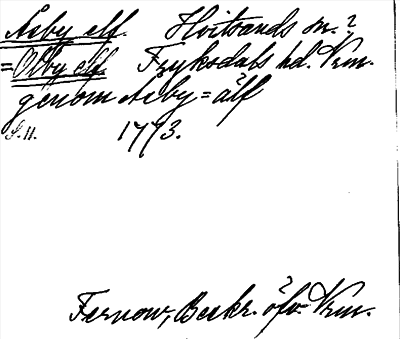 Åsby elf. Hvitsands sn.?
= Olby elf. Fryksdals hd. Vrm.
genom Aeby = älf
S.H. 1773.
Fernow, Beskr. öfv. Vrm.